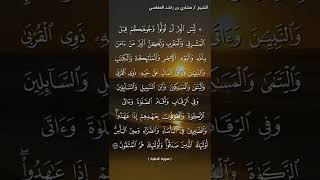 الشيخ / مشاري بن راشد العفاسي
۞ لَّيْسَ ٱلْبِرَّ أَن تُوَلُّوا۟ وُجُوهَكُمْ قِبَلَ
ٱلْمَشْرِقِ وَٱلْمَغْرِبِ وَلَٰكِنَّ ٱلْبِرَّ مَنْ ءَامَنَ
بِٱللَّهِ وَٱلْيَوْمِ ٱلْءَاخِرِ وَٱلْمَلَٰٓئِكَةِ وَٱلْكِتَٰبِ
وَٱلنَّبِيِّـۧنَ وَءَاتَى ٱلْمَالَ عَلَىٰ حُبِّهِۦ ذَوِى ٱلْقُرْبَىٰ
وَٱلْيَتَٰمَىٰ وَٱلْمَسَٰكِينَ وَٱبْنَ ٱلسَّبِيلِ وَٱلسَّآئِلِينَ
وَفِى ٱلرِّقَابِ وَأَقَامَ ٱلصَّلَوٰةَ وَءَاتَى
ٱلزَّكَوٰةَ وَٱلْمُوفُونَ بِعَهْدِهِمْ إِذَا عَٰهَدُوا۟ ۖ
وَٱلصَّٰبِرِينَ فِى ٱلْبَأْسَآءِ وَٱلضَّرَّآءِ وَحِينَ ٱلْبَأْسِ ۗ
أُو۟لَٰٓئِكَ ٱلَّذِينَ صَدَقُوا۟ ۖ وَأُو۟لَٰٓئِكَ هُمُ ٱلْمُتَّقُونَ
( سورة البقرة )